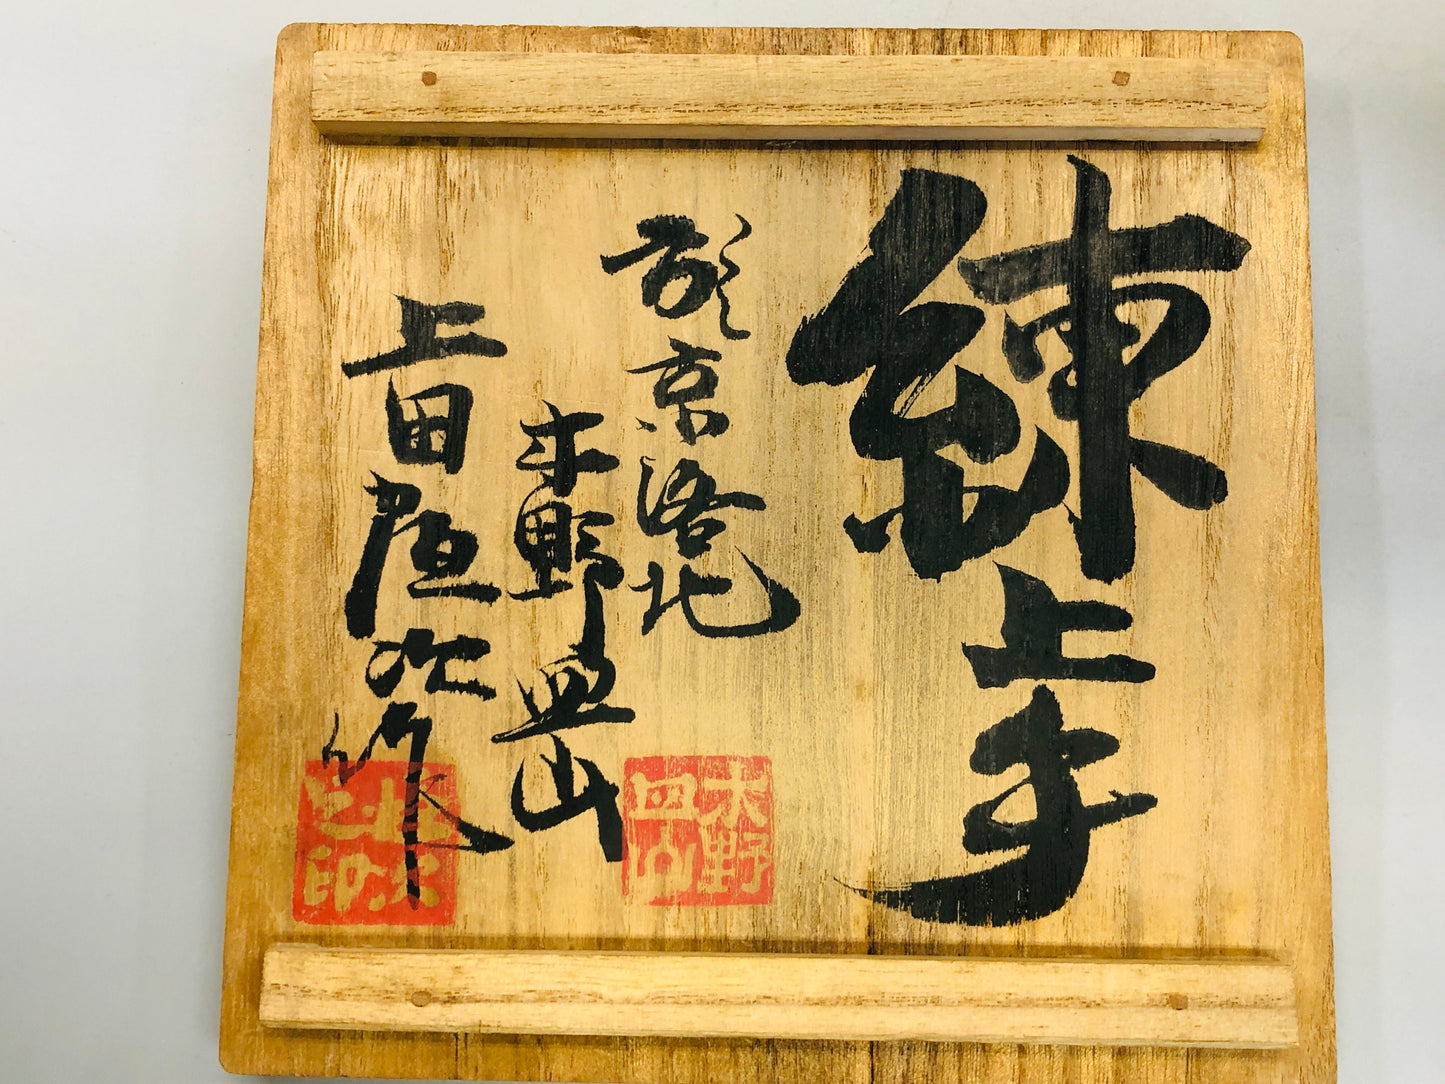 練上手
於京洛北
木野皿山
上田恒次作
木野
皿山
恒次
之印